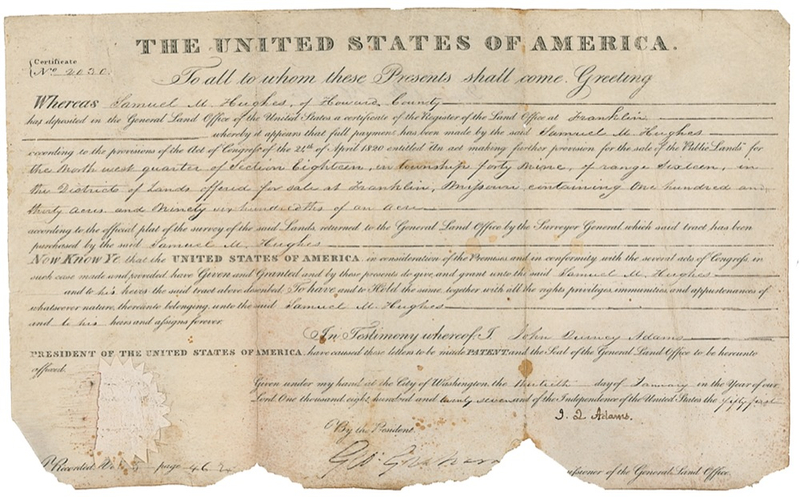 THE UNITED STATES OF AMERICA.
Certificate
No. 2030.
To all to whom these Presents shall come, Greeting
WHEREAS Samuel M. Hughes, of Howard County
has deposited in the General Land Office of the United States a certificate of the Register of the Land Office at Franklin
whereby it appears that full payment has been made by the said Samuel M. Hughes
according to the provisions of the Act of Congress of the 24th of April 1820 entitled An act making further provision for the sale of the Public Lands for
the North west quarter of Section Eighteen, in township forty Nine, of range Sixteen, in
the District of Lands offered for sale at Franklin, Missouri containing One hundred and
thirty acres and Ninety six hundredths of an acre
according to the official plat of the survey of the said Lands, returned to the General Land Office by the Surveyor General, which said tract has been
purchased by the said Samuel M. Hughes
NOW KNOW YE that the UNITED STATES OF AMERICA, in consideration of the Premises, and in conformity with the several acts of Congress, in
such case made and provided, have Given and Granted, and by these presents do give, and grant unto the said Samuel M. Hughes
and to his heirs, the said tract above described; To have and to Hold the same, together with all the rights, privileges, immunities, and appurtenances of
whatsoever nature, thereunto belonging, unto the said Samuel M. Hughes
and to his heirs and assigns forever.
In Testimony whereof, I, John Quincy Adams
PRESIDENT OF THE UNITED STATES OF AMERICA, have caused these letters to be made PATENT and the Seal of the General Land Office to be hereunto
affixed.
Given under my hand at the City of Washington, the thirtieth day of January in the Year of our
Lord One thousand eight hundred and twenty seven and of the Independence of the United States the fifty first
By the President
J. Q. Adams.
Geo: Graham
Recorded page 462
ssioner of the General Land Office